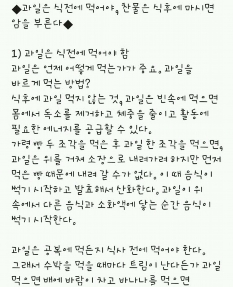 ◆과일은 식전에 먹어야, 찬물은 식후에 마시면
암을 부른다◆
1) 과일은 식전에 먹어야 함
과일은 언제 어떻게 먹는가가 중요, 과일을
바르게 먹는 방법?
식후에 과일 먹지 않는 것, 과일은 빈속에 먹으면
몸에서 독소를 제거하고 체중을 줄이고 활동에
필요한 에너지를 공급할 수 있다.
가령 빵 두 조각을 먹은 후 과일 한 조각을 먹으면,
과일은 위를 거쳐 소장으로 내려가려 하지만 먼저
먹은 빵 때문에 내려 갈 수가 없다. 이 때 음식이
썩기 시작하고 발효해서 산화한다. 과일이 위
속에서 다른 음식과 소화액에 닿는 순간 음식이
썩기 시작한다.
과일은 공복에 먹든지 식사 전에 먹어야 한다.
그래서 수박을 먹을 때마다 트림이 난다든가 과일
먹으면 배에 바람이 차고 바나나를 먹으면